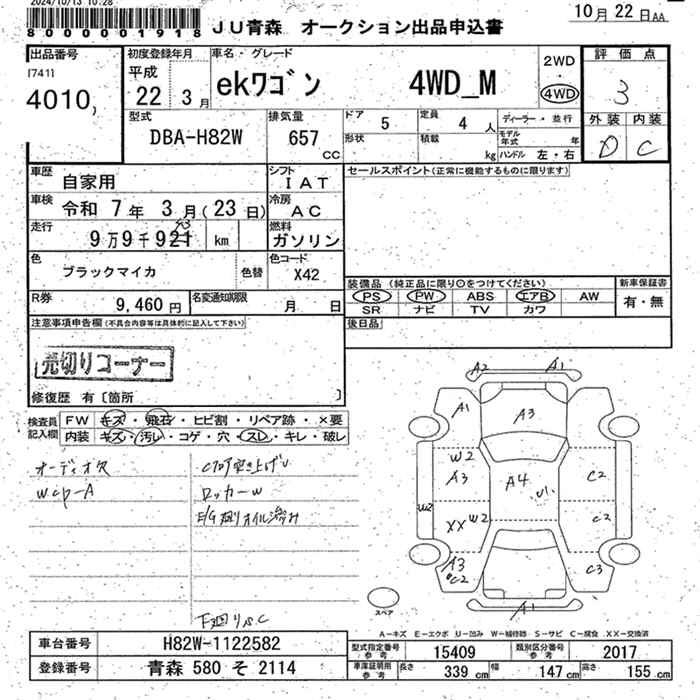 2024/10/13 10:28
8000001918
JU青森 オークション出品申込書
10月 22日AA
出品番号
[741]
4010
初度登録年月
平成
22 3月
車名・グレード
ekワゴン 4WD_M
2WD
4WD
評価点
3
外装 内装
D C
型式
DBA-H82W
排気量
657
CC
ドア 5
定員 4 人
形状
積載 kg
ディーラー・並行
モデル年式 年
ハンドル 左・右
車歴
自家用
シフト
IAT
セールスポイント(正常に機能するものに限ります)
車検
令和 7年 3月(23日)
冷房
AC
走行
9万9千921 km
燃料
ガソリン
色
ブラックマイカ
色替
色コード
X42
装備品 (純正品に限り○をつけてください)
PS PW ABS エアB AW
SR ナビ TV カワ
新車保証書
有・無
R券
9,460円
名変通知期限
月 日
後日品
注意事項申告欄(不具合内容等は具体的に記入して下さい)
売切りコーナー
修復歴 有〔箇所 〕
検査員記入欄
FW キズ・飛石・ヒビ割・リペア跡・×要
内装 キズ・汚レ・コゲ・穴・スレ・キレ・破レ
オーディオ欠
Wcp-A
Cフロア突き上げU
ロッカーW
E/G廻りオイル滲み
下廻りS.C
A2 A1
A1 A3
W2
A3 A4 U1 C2
W2 XX W2 C2
A3
C2 C3
A1
スペア
A-キズ E-エクボ U-凹み W-補修跡 S-サビ C-腐食 XX-交換済
車台番号
H82W-1122582
登録番号
青森 580 そ 2114
型式指定番号
参考
15409
類別区分番号
参考
2017
車庫証明用
参考
長さ 339 cm
幅 147 cm
高さ 155 cm